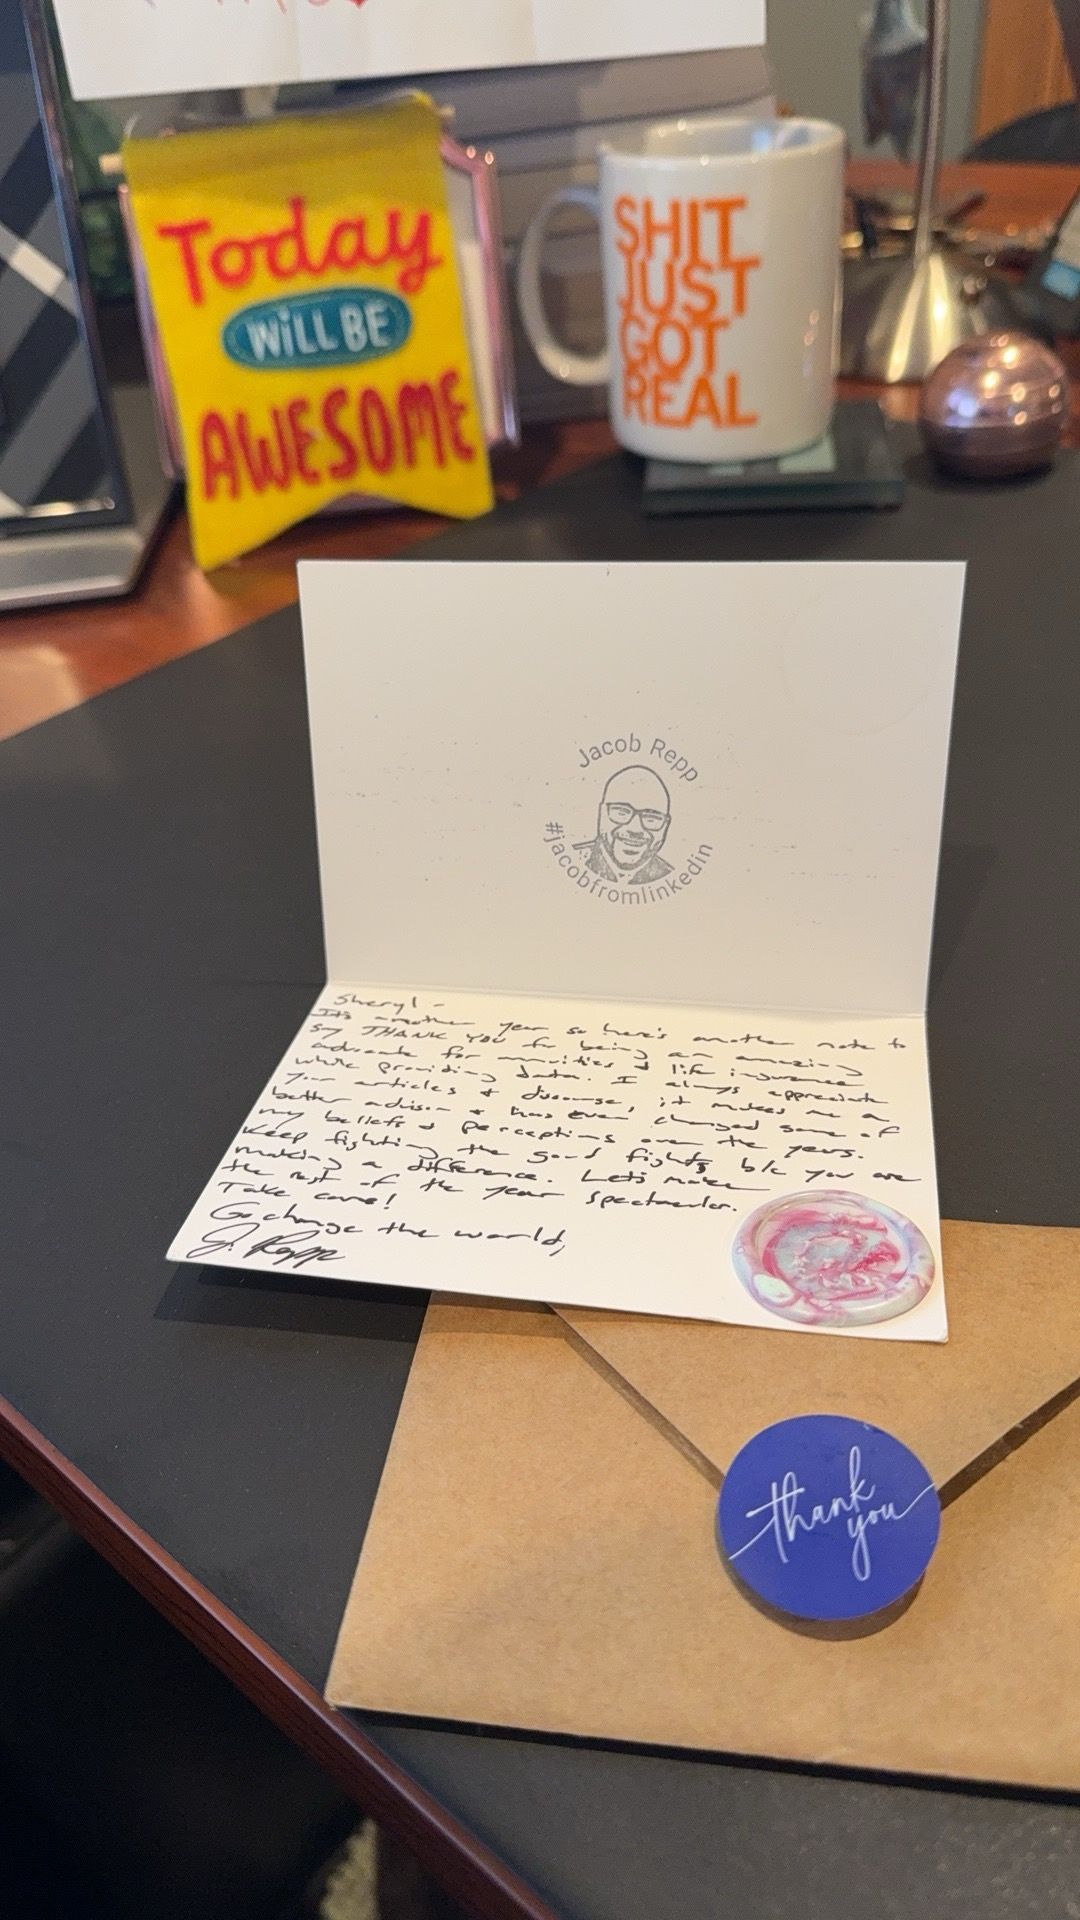 Today
WiLL BE
AWESOME
SHIT
JUST
GOT
REAL
Jacob Repp
#jacobfromlinkedin
Sheryl -
It's another year so here's another note to
say THANK YOU for being an amazing
advocate for annuities & life insurance
while providing data. I always appreciate
your articles & discourse, it makes me a
better advisor & has even changed some of
my beliefs & perceptions over the years.
Keep fighting the good fights b/c you are
making a difference. Let's make
the rest of the year spectacular.
Take care!
Go change the world,
J. Repp
thank
you